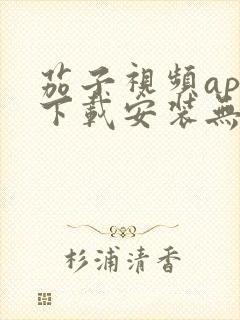 茄子視頻ap
下載安装無
杉浦清香